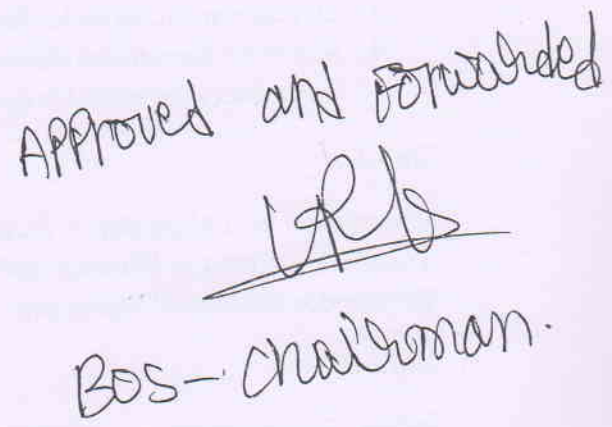 Approved and Forwarded
BOS - Chairman.